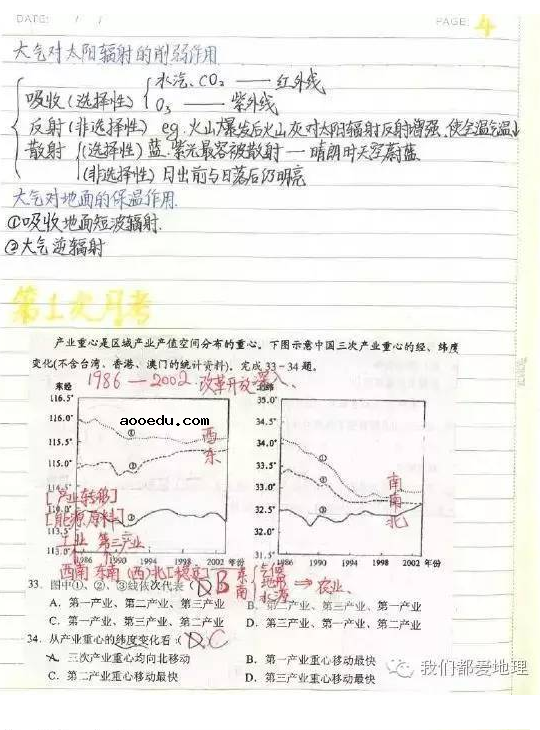 DATE: / /
PAGE: 4
大气对太阳辐射的削弱作用
吸收(选择性) 水汽、CO₂ —— 红外线
O₃ —— 紫外线
反射(非选择性) eg.火山爆发后火山灰对太阳辐射反射增强,使全温气温↓
散射 (选择性) 蓝.紫光最容被散射 — 晴朗时天空蔚蓝.
(非选择性) 日出前与日落后仍明亮
大气对地面的保温作用.
①吸收地面短波辐射.
②大气逆辐射
第1次月考
产业重心是区域产业产值空间分布的重心。下图示意中国三次产业重心的经、纬度
变化(不含台湾、香港、澳门的统计资料)。完成33-34题。
1986—2002 改革开放深入、
东经
北纬
116.5°
116.0°
115.5°
115.0°
114.5°
113.0°
① 西
② 东
③
1986 1990 1994 1998 2002 年份
35.0°
34.5°
34.0°
33.5°
33.0°
32.5°
32.0°
31.5°
①
②
③
南
南
北
1986 1990 1994 1998 2002 年份
aooedu.com
[产业转移]
[能源,原料]
工业 第三产业
西南 东南 (西)北[稳定]
东南 气候 地形 水源 ⇒ 农业、
33. 图中①、②、③线依次代表( D B
A. 第一产业、第二产业、第三产业 B. 第二产业、第三产业、第一产业
C. 第一产业、第三产业、第二产业 D. 第三产业、第一产业、第二产业
34. 从产业重心的纬度变化看:( D.C
A. 三次产业重心均向北移动 B. 第一产业重心移动最快
C. 第二产业重心移动最快 D. 第三产业重心移动最快
我们都爱地理